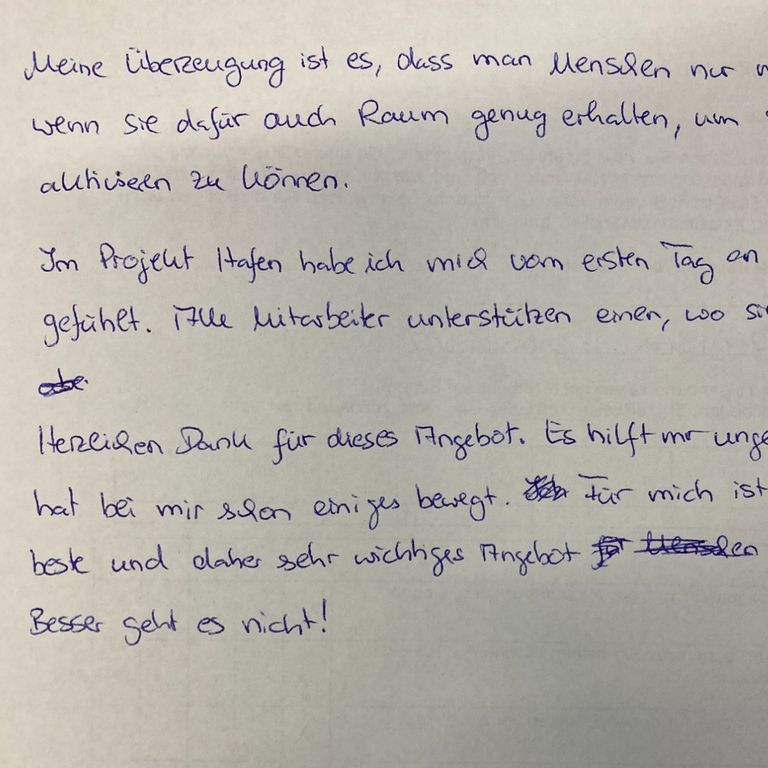 Meine Überzeugung ist es, dass man Menschen nur
wenn sie dafür auch Raum genug erhalten, um
aktivieren zu können.
Im Projekt Hafen habe ich mich vom ersten Tag an
gefühlt. Alle Mitarbeiter unterstützen einen, wo
Herzlichen Dank für dieses Angebot. Es hilft mr unge
hat bei mir schon einiges bewegt. Für mich ist
beste und daher sehr wichtiges Angebot
Besser geht es nicht!